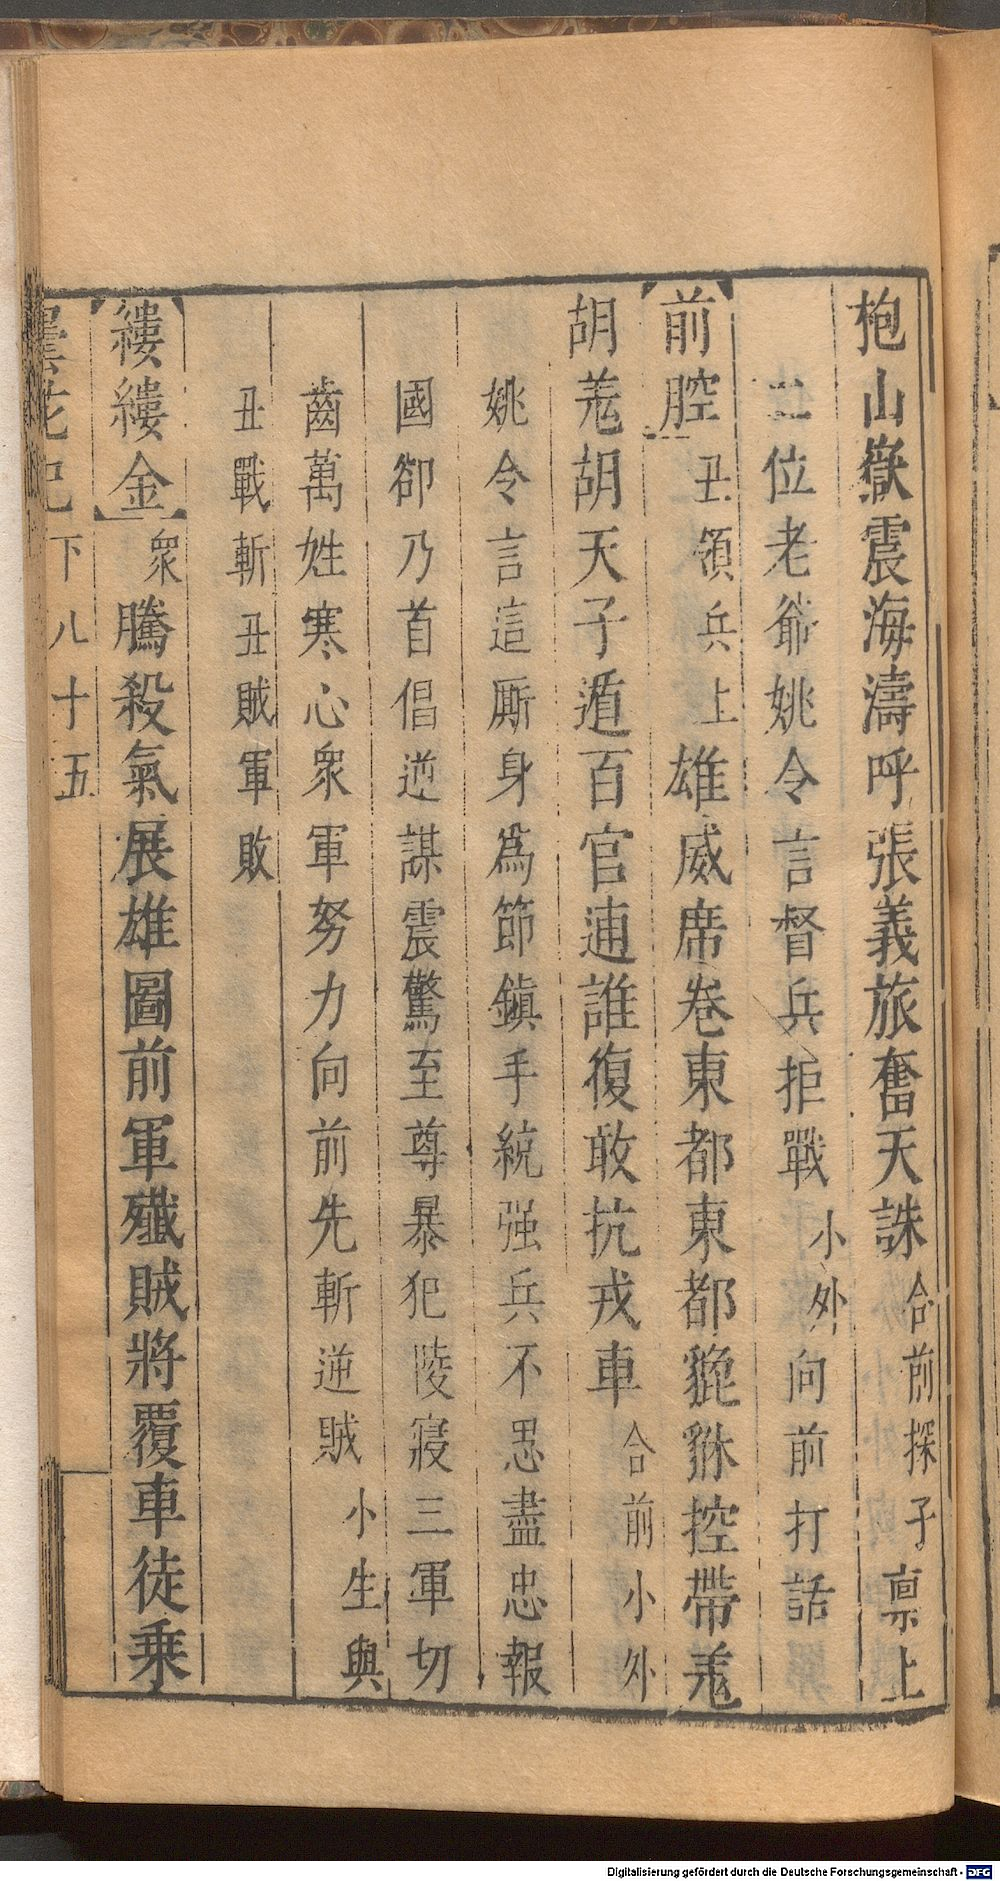 枹山嶽震海濤呼張義旅奮天誅合前探子稟上
二位老爺姚令言督兵拒戰小外向前打話
前腔丑領兵上雄威席卷東都東都貔貅控帶羌
胡羌胡天子遁百官逋誰復敢抗戎車合前小外
姚令言這厮身爲節鎮手統强兵不思盡忠報
國卻乃首倡逆謀震驚至尊暴犯陵寢三軍切
齒萬姓寒心衆軍努力向前先斬逆賊小生與
丑戰斬丑賊軍敗
縷縷金衆騰殺氣展雄圖前軍殱賊將覆車徒乗
曇花記下八十五
Digitalisierung gefördert durch die Deutsche Forschungsgemeinschaft - DFG